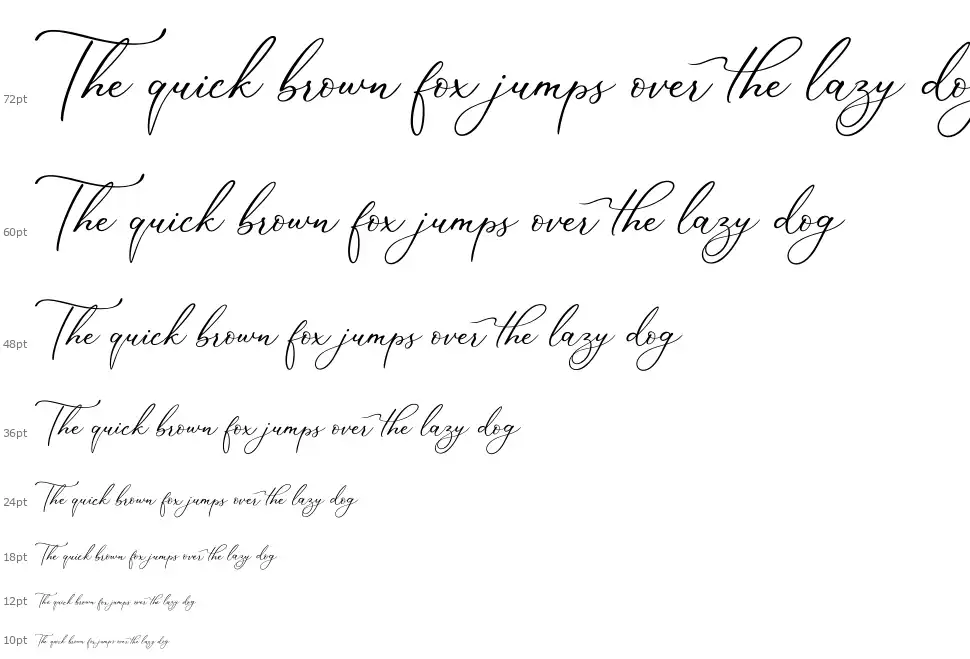 72pt The quick brown fox jumps over the lazy do
60pt The quick brown fox jumps over the lazy dog
48pt The quick brown fox jumps over the lazy dog
36pt The quick brown fox jumps over the lazy dog
24pt The quick brown fox jumps over the lazy dog
18pt The quick brown fox jumps over the lazy dog
12pt The quick brown fox jumps over the lazy dog
10pt The quick brown fox jumps over the lazy dog